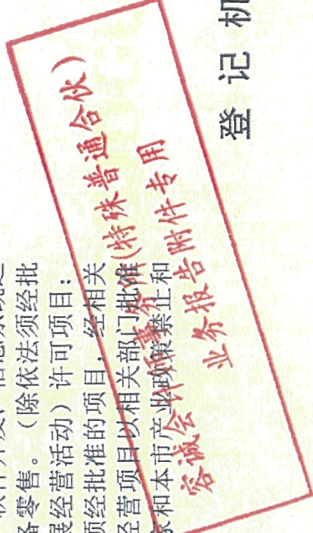 备零售。（除依法须经批
展经营活动）许可项目：
须经批准的项目，经相关
经营项目以相关部门批准
家和本市产业政策禁止和
登记机
容诚会计师事务所(特殊普通合伙)
业务报告附件专用